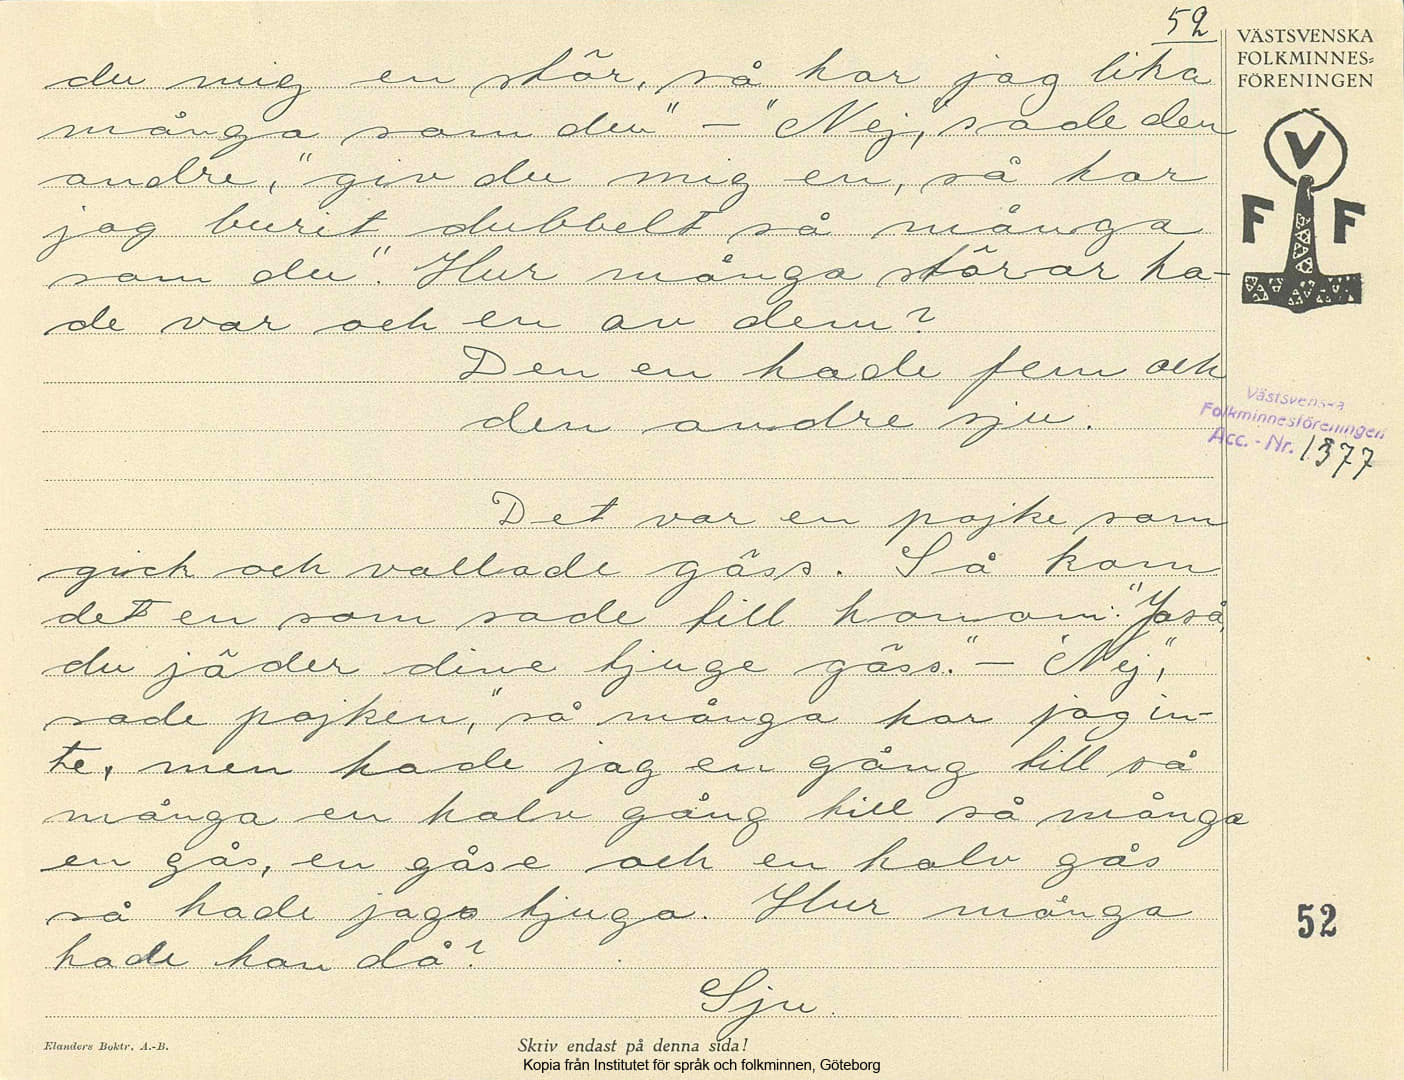 52
VÄSTSVENSKA
FOLKMINNES-
FÖRENINGEN
du mig en stör, så har jag lika
många som du" – "Nej," sade den
andre, "giv du mig en, så har
jag burit dubbelt så många
som du". Hur många störar ha-
de var och en av dem?
Den en hade fem och
den andre sju.
V
F F
Västsvenska
Folkminnesföreningen
Acc. - Nr. 1377
Det var en pojke som
gick och vallade gäss. Så kom
det en som sade till honom: "Jaså,
du jäder dine tjuge gäss." – "Nej,"
sade pojken, "så många har jag in-
te, men hade jag en gång till så
många en halv gång till så många
en gås, en gåse och en halv gås
så hade jag tjuga. Hur många
hade han då?
Sju.
52
Elanders Boktr. A.-B.
Skriv endast på denna sida!
Kopia från Institutet för språk och folkminnen, Göteborg